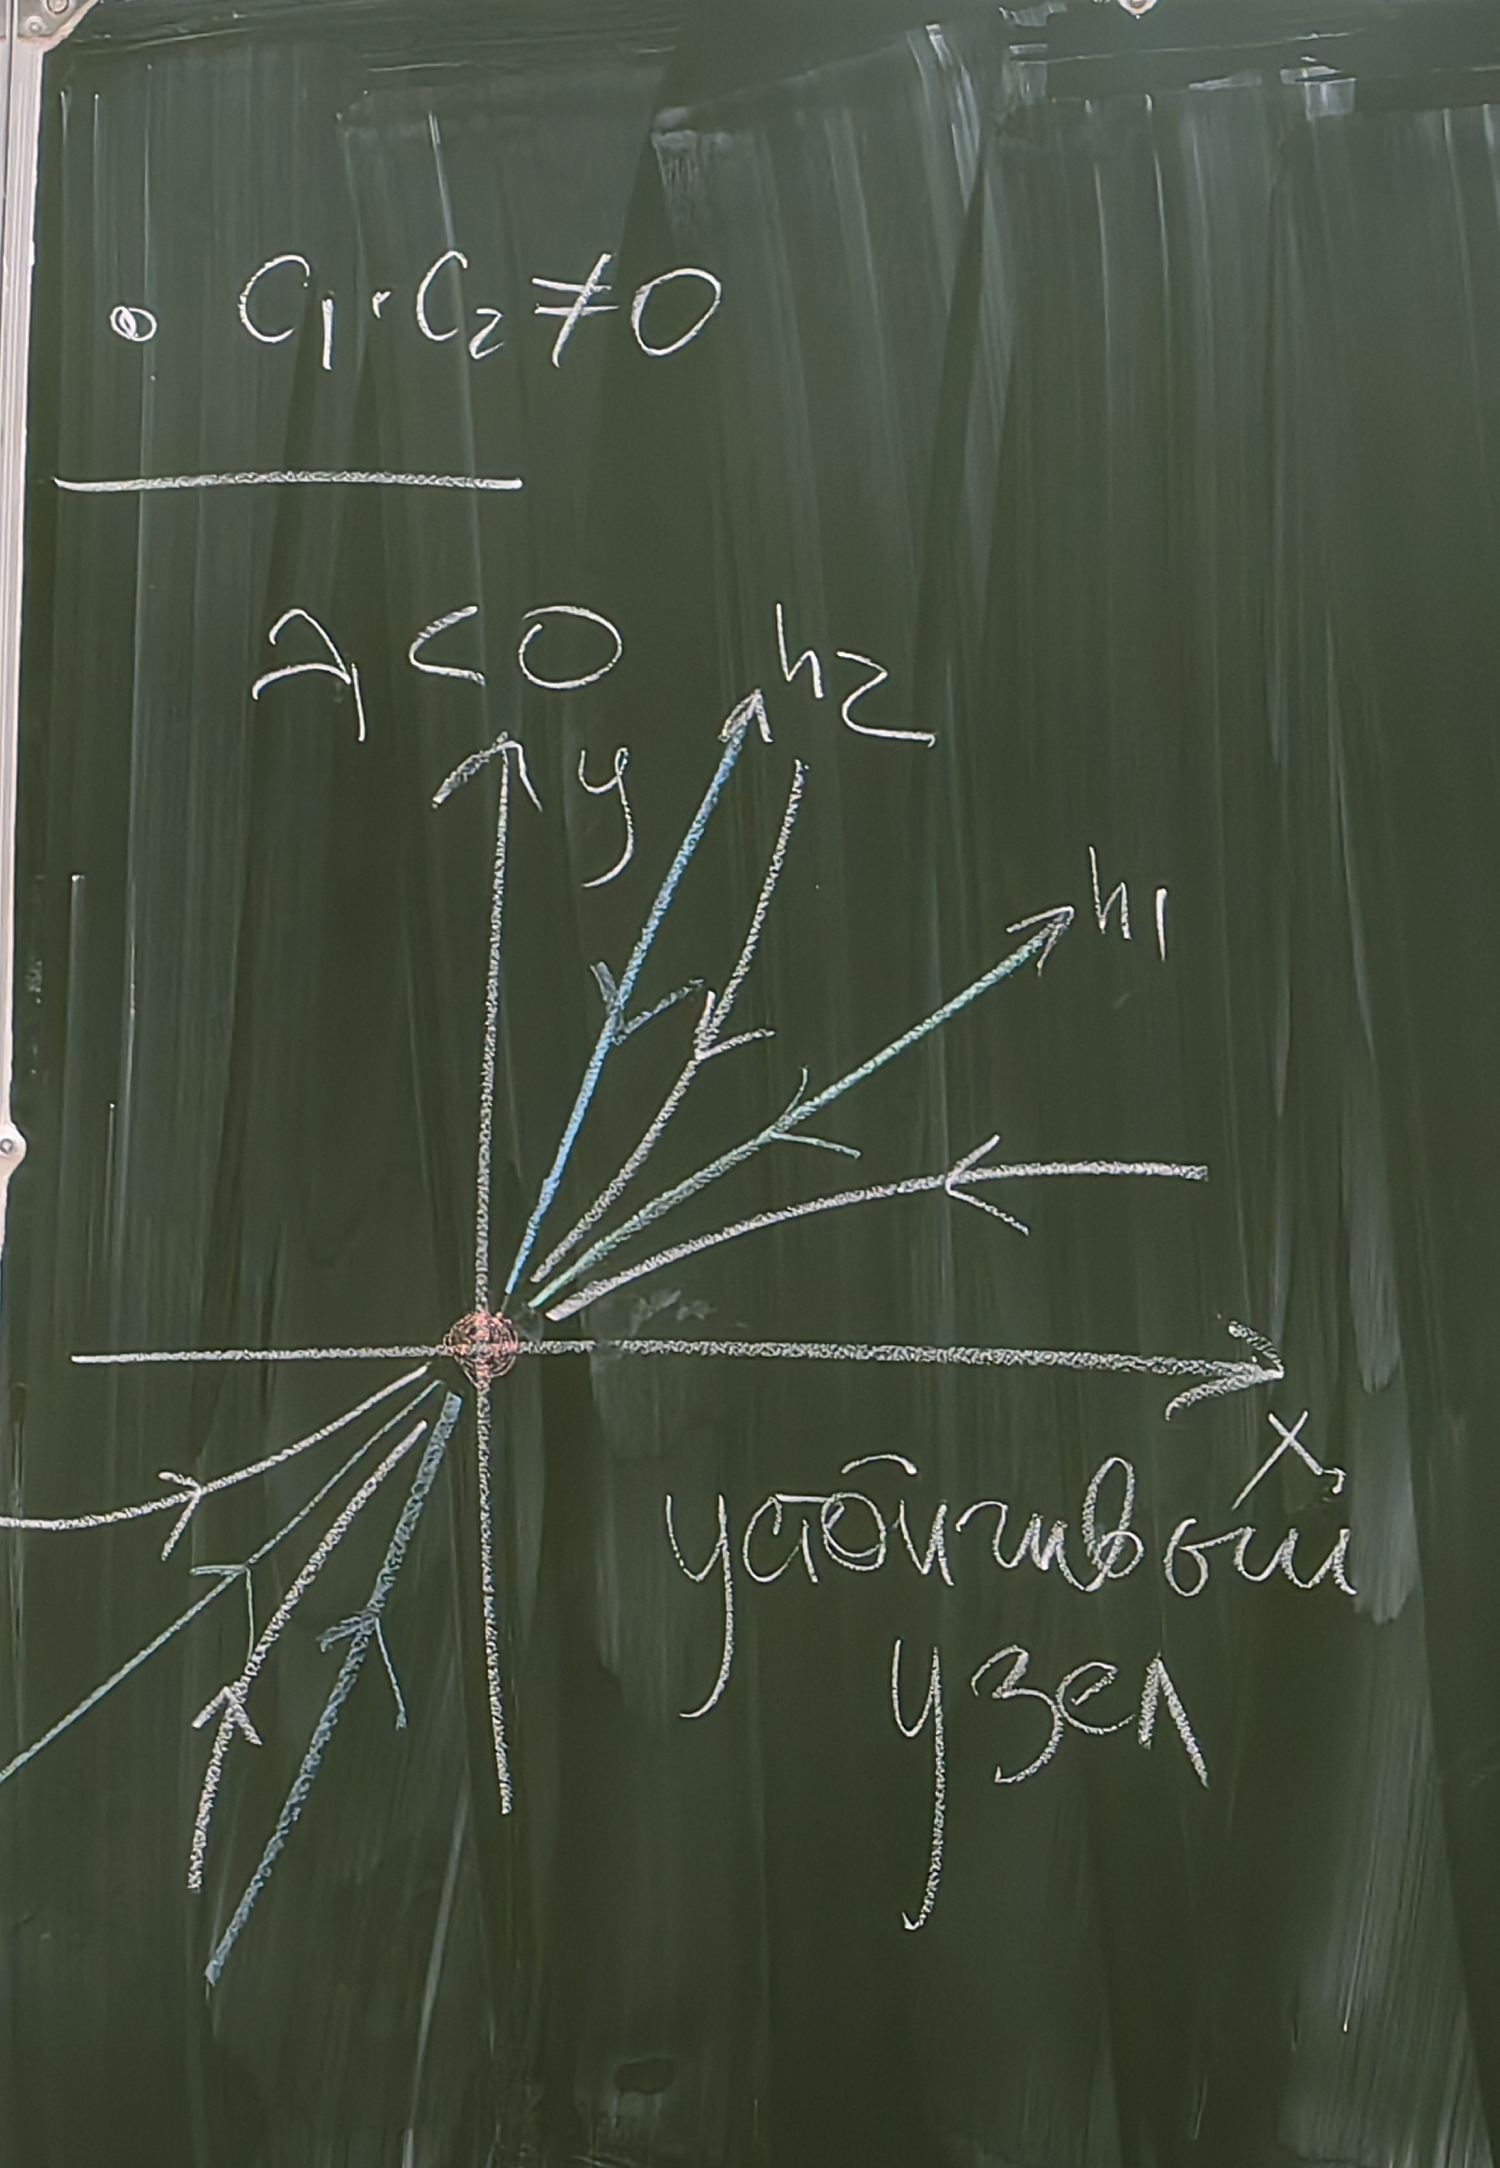 • C₁·C₂≠0
λ₁<0
h2
y
h1
x
устойчивый
узел